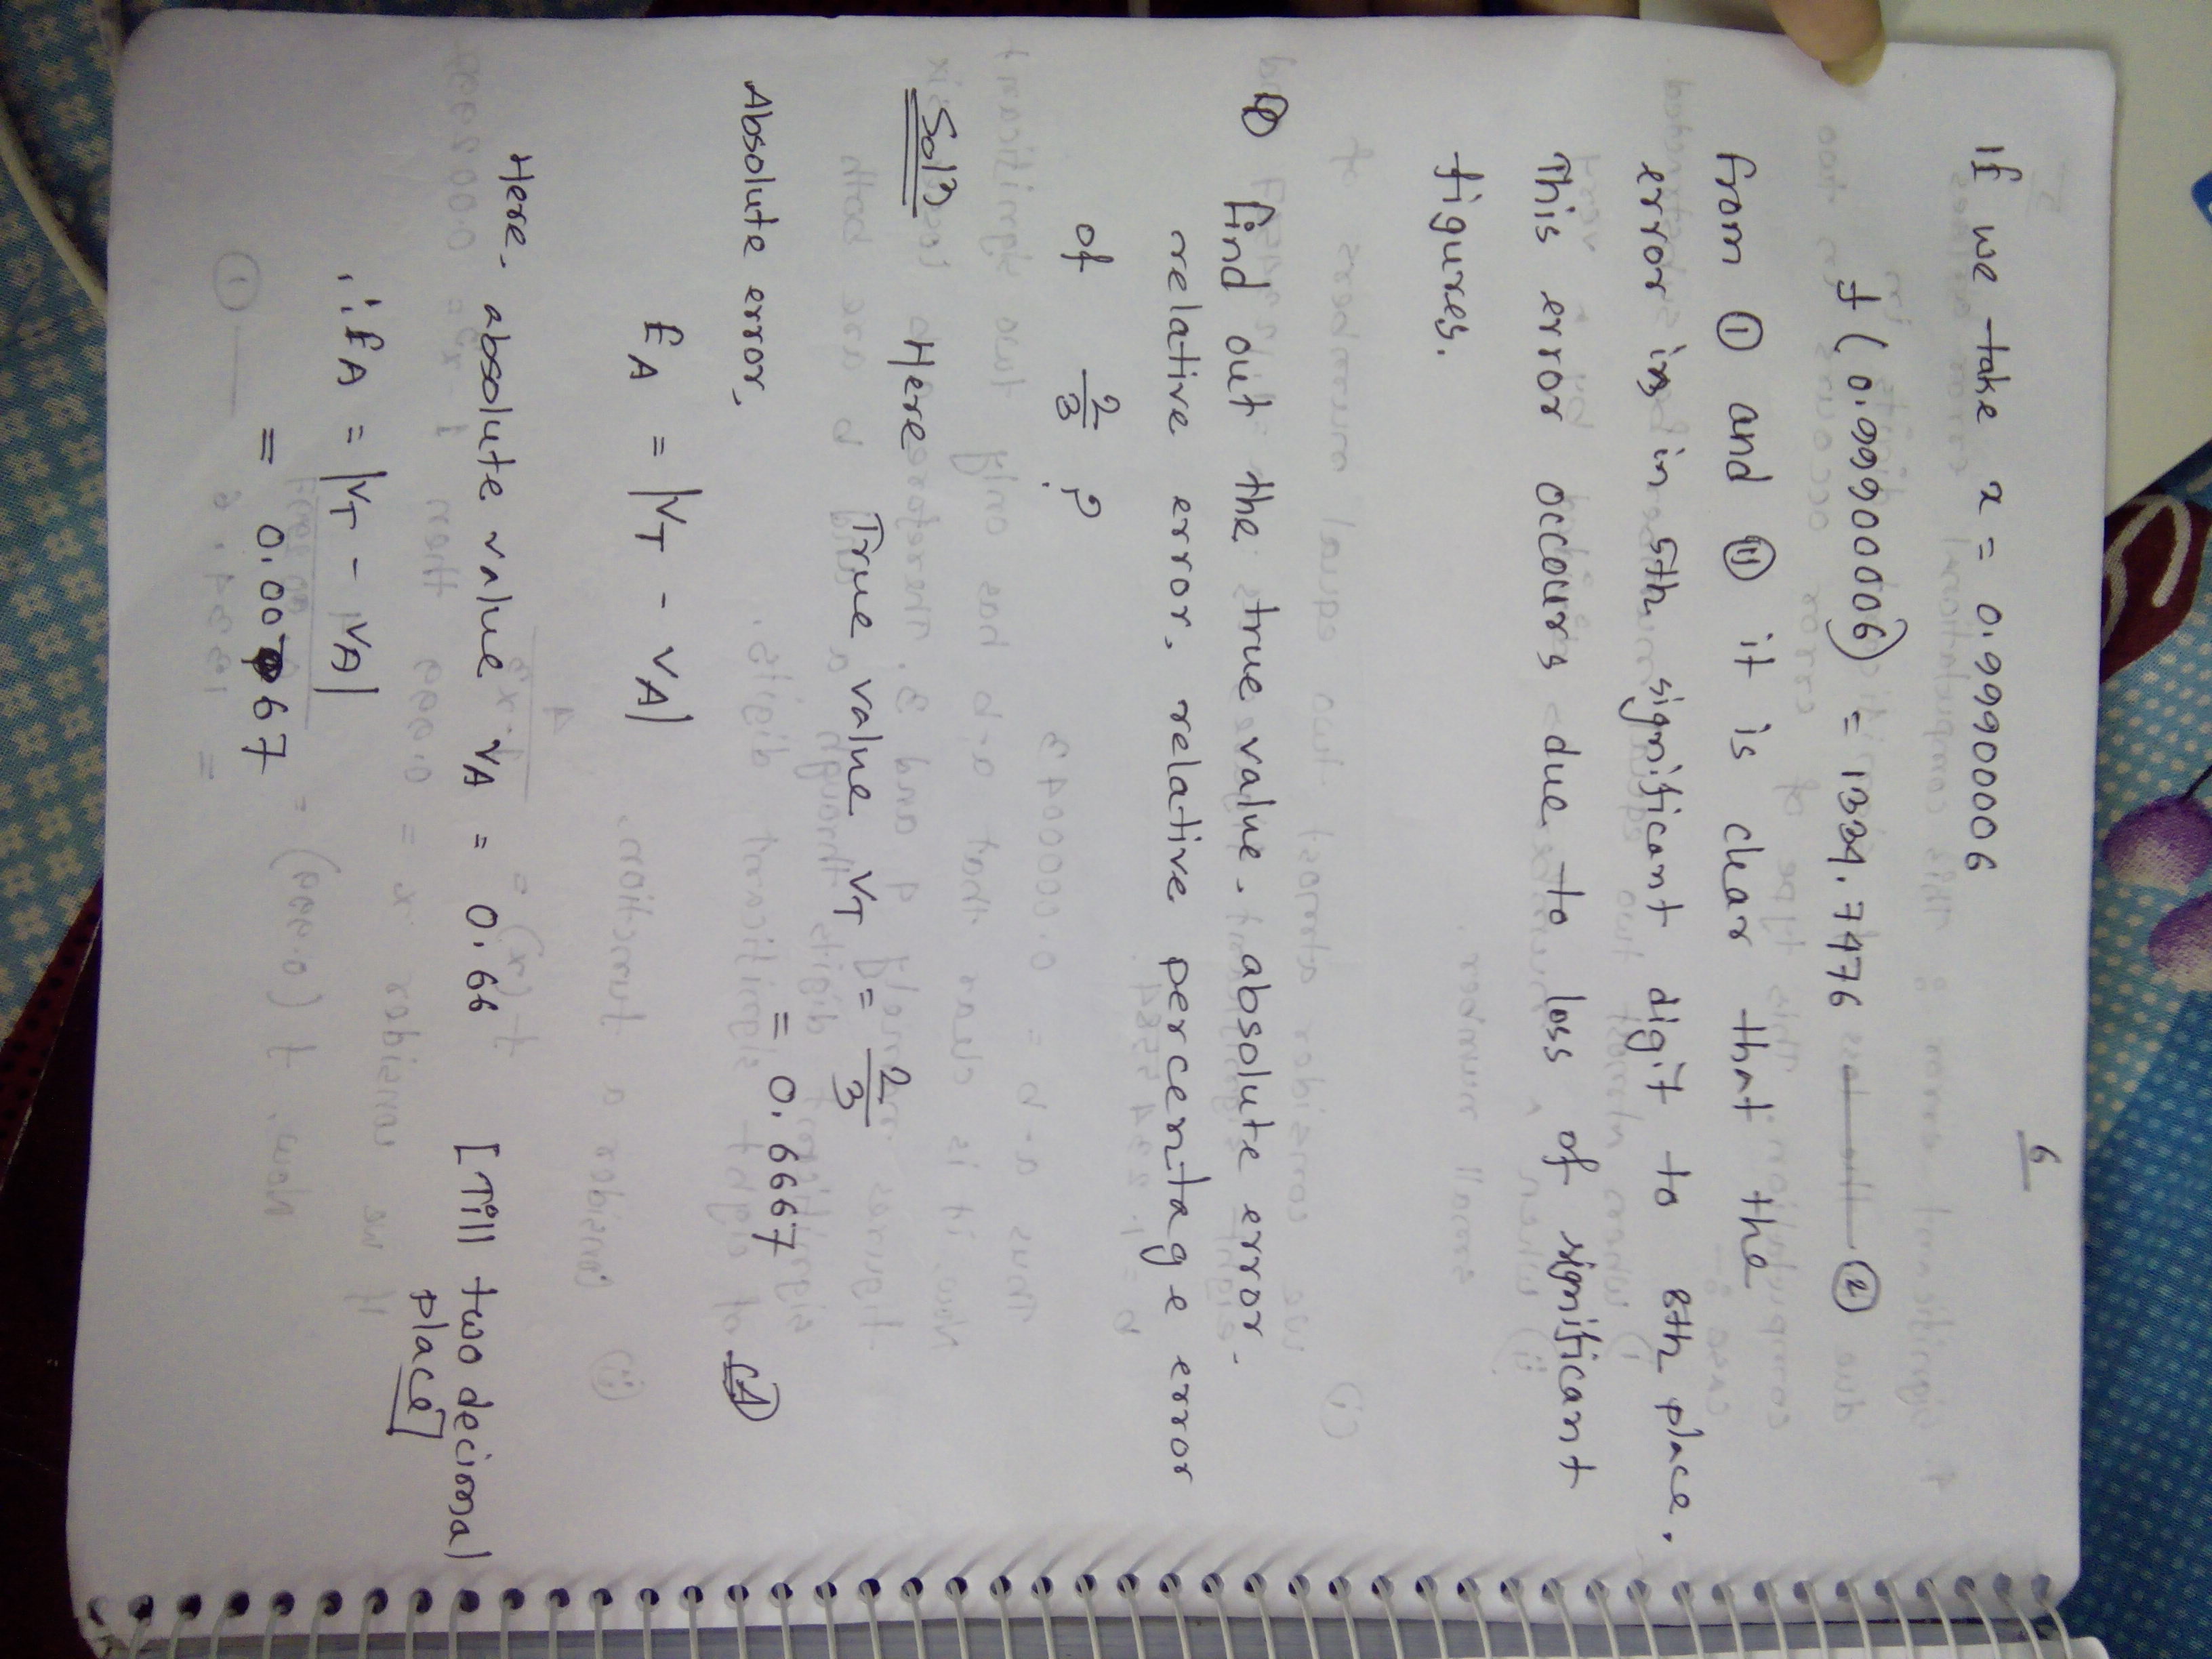 6
If we take x = 0.99900006
f(0.99900006) = 1334.7476 ——— ②
from ① and ⑪ it is clear that the
error is in 5th significant digit to 8th place.
This error occours due to loss of significant
figures.
Q find out the true value, absolute error,
relative error, relative percentage error
of 2/3 ?
Soln Here
True value VT = 2/3
= 0.6667
Absolute error,
EA = |VT - VA|
Here, absolute value VA = 0.66 [Till two decimal
place]
∴ EA = |VT - VA|
= 0.0067